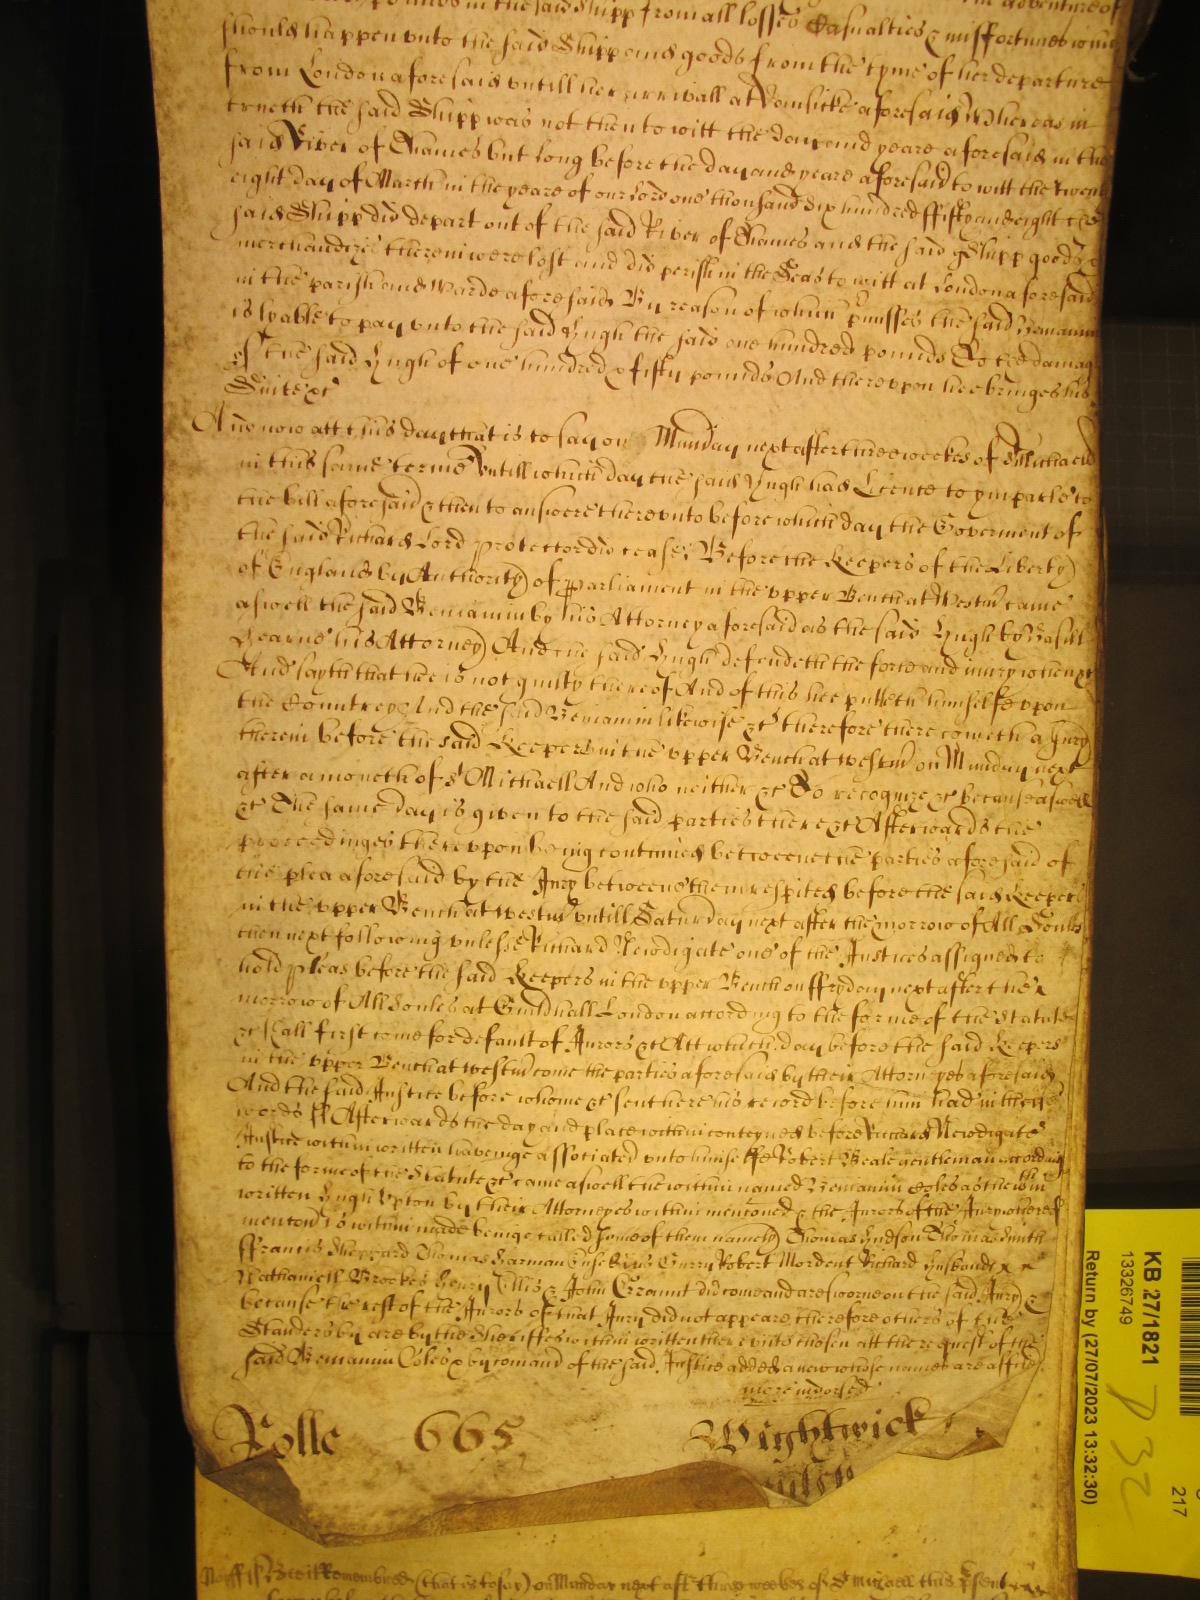 pounds in the said Shipp from all losses Casualties & misfortunes
should happen unto the said Shipp and goods from the tyme of her departure
from London aforesaid untill her arrivall at aforesaid Whereas in
trueth the said Shipp was not then to witt the day and yeare aforesaid in the
said River of Thames but long before the day and yeare aforesaid to witt the twenty
eight day of March in the yeare of our Lord one thousand six hundred fifty and eight the
said Shipp did depart out of the said River of Thames and the said Shipp goods &
merchandizes therein were lost and did perish in the Seas to witt at London aforesaid
in the parish and Warde aforesaid By reason of which the said Beniamin
is lyable to pay unto the said Hugh the said one hundred pounds To the damage
of the said Hugh of one hundred & fifty pounds And thereupon hee bringes his
Suite &c
And now att this day that is to say on Munday next after three weekes of St Michaell
in this same terme Untill which day the said Hugh had Licence to ymparle to
the bill aforesaid & then to answere thereunto before which day the Goverment of
the said Richard Lord Protector did cease Before the Keepers of the Liberty
of England by Authority of Parliament in the upper Bench at Westmr came
aswell the said Beniamin by his Attorney aforesaid as the said Hugh by Basill
Hearne his Attorney And the said Hugh defendeth the force and iniury when &c
And sayth that hee is not guilty thereof And of this hee putteth himselfe upon
the Countrey And the said Beniamin likewise &c therefore there cometh a Jury
therein before the said Keepers in the upper Bench at Westmr on Munday next
after a moneth of St Michaell And who neither &c To recognize &c because aswell
&c The same day is given to the said parties there &c Afterwards the
proceedinges thereupon being continued betweene the parties aforesaid of
the plea aforesaid by the Jury betweene them respited before the said Keepers
in the upper Bench at Westmr untill Saturday next after the morrow of All Soules
then next following unlesse Richard Newdigate one of the Justices assigned to
hold pleas before the said Keepers in the upper Bench on ffryday next after the
morrow of All Soules at Guildhall London according to the forme of the Statute
&c shall first come for default of Jurors &c Att which day before the said Keepers
in the upper Bench at Westmr come the parties aforesaid by their Attorneyes aforesaid
And the said Justice before whome &c sent here his record before him had in these
words ss Afterwards the day and place within conteyned before Richard Newdigate
Justice within written haveinge associated unto himselfe Robert Beale gentleman according
to the forme of the Statute &c came aswell the within named Beniamin Coles as the within
written Hugh Upton by their Attorneyes within mencioned & the Jurors of the Jury whereof
mencon is within made beinge called some of them namely Thomas Hudson Thomas Smith
ffrancis Sheppard Thomas Harman Eusebius Curry Robert Mordent Richard Husbands
Nathaniell Brookes Henry Ellis & John Graunt did come and are sworne on the said Jury &
because the rest of the Jurors of that Jury did not appeare therefore others of the
Standers by are by the Sheriffes within written thereunto chosen att the request of the
said Beniamin Coles & by comand of the said Justice added anew whose names are affiled
more indorsed
Rolle 665 Wightwick
ss Bee it Remembred (that is to say) on Munday next after three weekes of St Michaell this
KB 27/1821
13326749
Return by (27/07/2023 13:32:30)
217
P 32